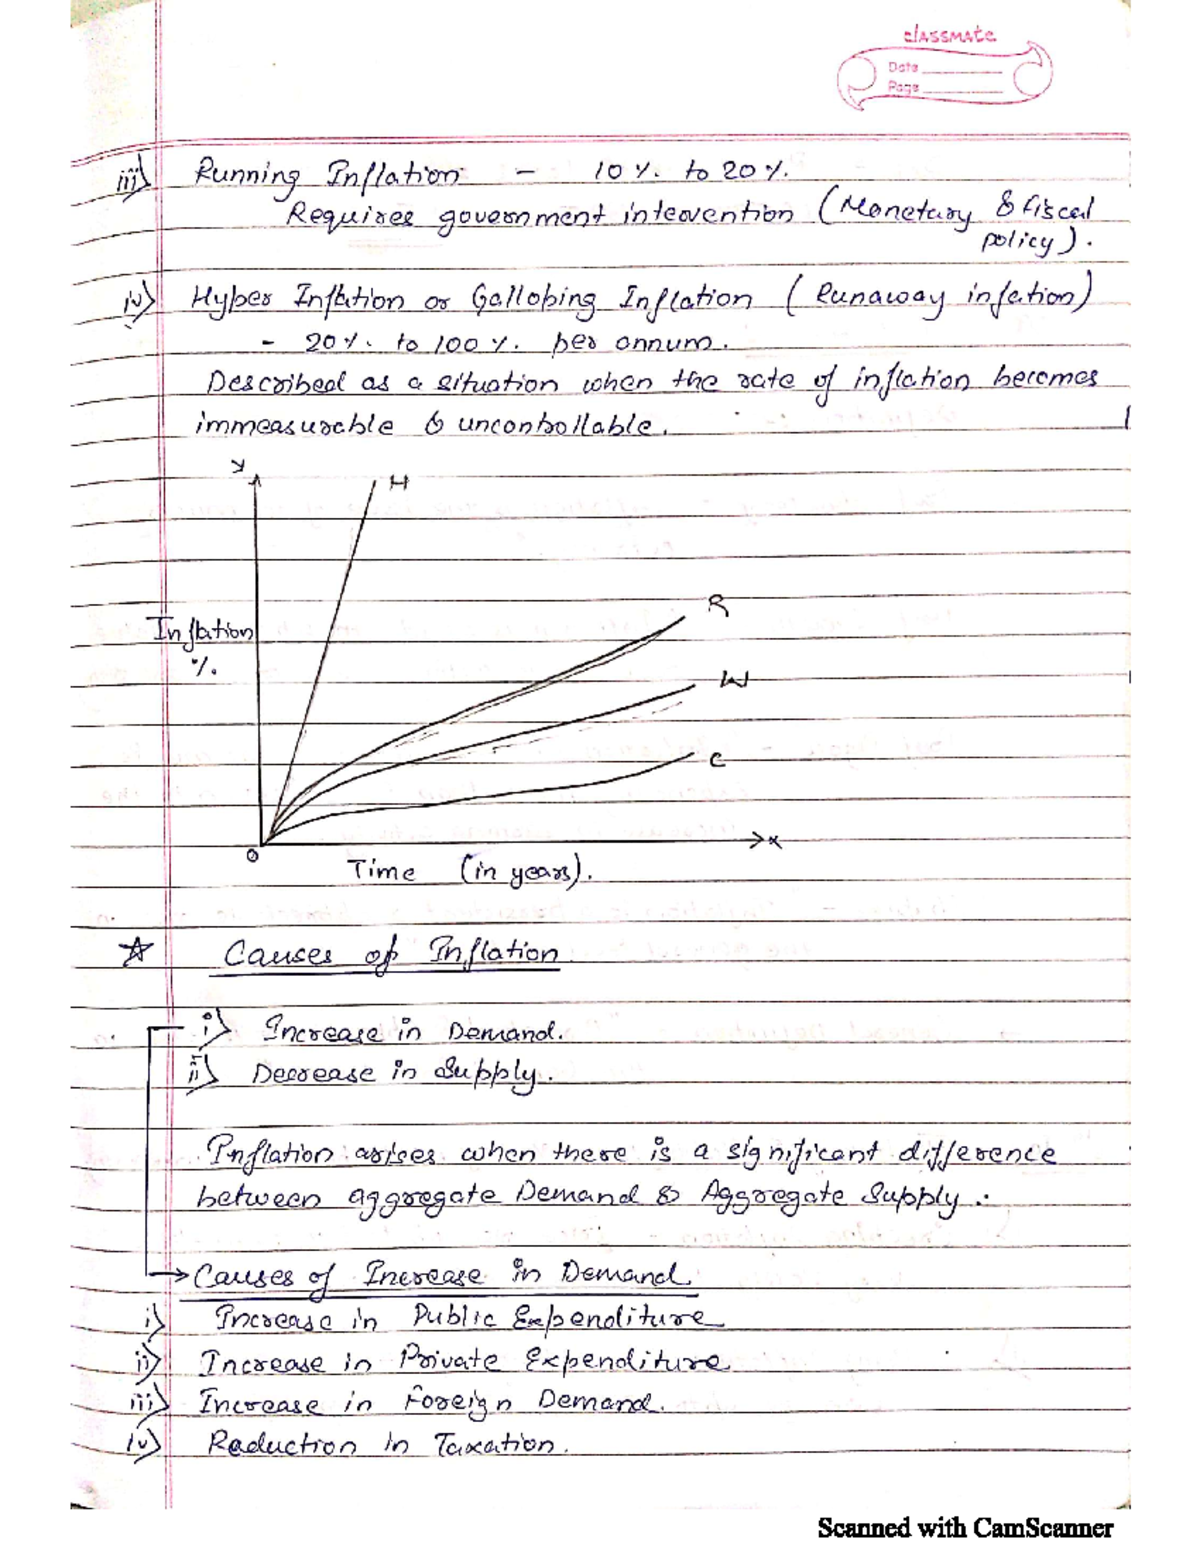 classmate
Date
Page
iii) Running Inflation - 10 %. to 20 %.
Requires government intervention (Monetary & fiscal
policy).
iv) Hyper Inflation or Galloping Inflation ( Runaway inflation)
- 20 %. to 100 %. per annum.
Described as a situation when the rate of inflation becomes
immeasurable & uncontrollable.
Y
H
R
Inflation
%.
W
C
O
X
Time (in years).
☆ Causes of Inflation
i) Increase in Demand.
ii) Decrease in Supply.
Inflation arises when there is a significant difference
between aggregate Demand & Aggregate Supply.
→ Causes of Increase in Demand
i) Increase in Public Expenditure
ii) Increase in Private Expenditure
iii) Increase in Foreign Demand.
iv) Reduction in Taxation.
Scanned with CamScanner